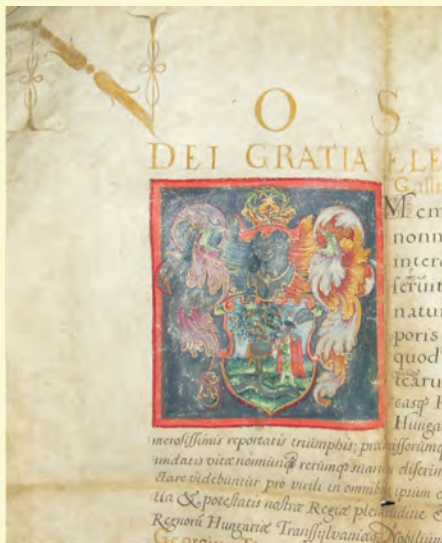 NOS
DEI GRATIA ELE
Galli
Mem
nonn
intera
seruit
natur
poris
quod
casq H
Hunga
merosissimis reportatis triumphis;
undatis vitæ rerumq suaru
ctare videbuntur pro virili in omnibus ipsum
tia & potestatis nostræ Regiæ plenitudine
Regnorũ Hungariæ Transsylvaniæq Nobilium